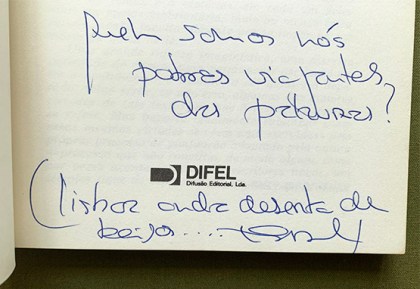 Quem somos nós
pobres viajantes
das palavras?
DIFEL
Difusão Editorial, Lda.
(Lisboa anda deserta de
beijos....